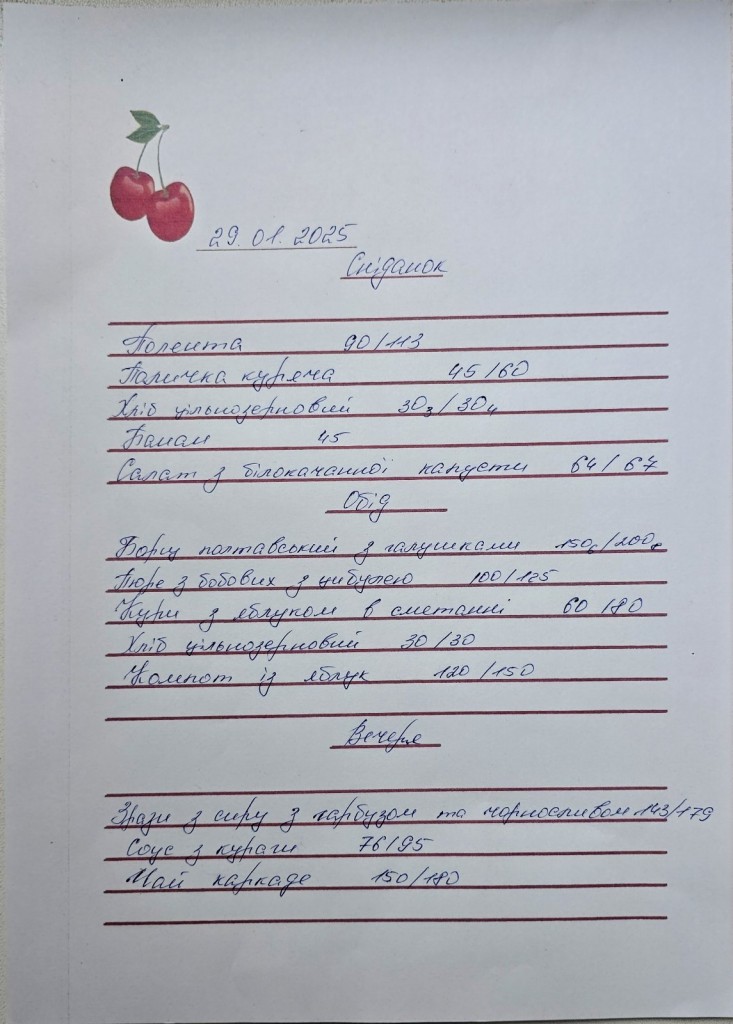 29.01.2025
Сніданок
Полента 90/113
Паличка куряча 45/60
Хліб цільнозерновий 30₃/30₄
Банан 45
Салат з білокачанної капусти 64/67
Обід
Борщ полтавський з галушками 150₆/200₈
Пюре з бобових з цибулею 100/125
Кури з яблуком в сметанні 60/80
Хліб цільнозерновий 30/30
Компот із яблук 120/150
Вечеря
Зрази з сиру з гарбузом та чорносливом 143/179
Соус з кураги 76/95
Чай каркаде 150/180